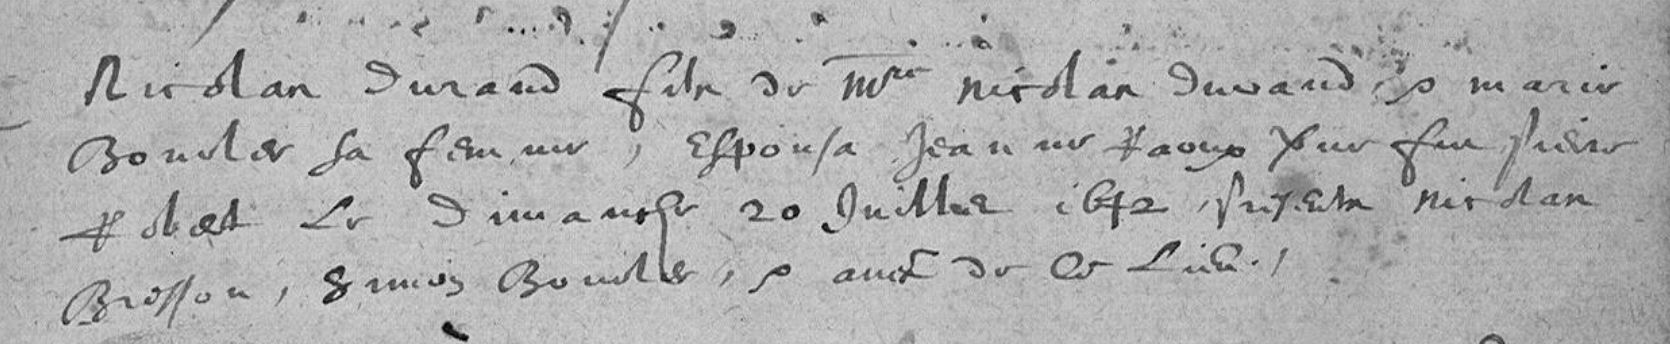 Nicolas Durand fils de Mre Nicolas Durand, & Marie
Bouvler sa femme, Espousa Jeanne Raoux vve feu Pierre
Robert Le Dimanche 20 Juillet 1642, presents Nicolas
Bresson, Simon Bouvler, & autres de Ce Lieu.